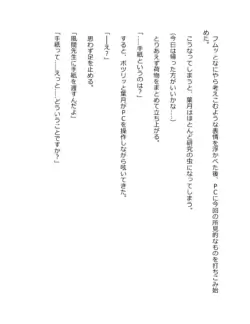 フムッとなにやら考えこむような表情を浮かべた後、PCに今回の所見的なものを打ちこみ始
めた。
こうなってしまうと、葉月はほとんど研究の虫になってしまう。
(今日は帰った方がいいかな……)
とりあえず荷物をまとめて立ち上がる。
「……手紙というのは？」
すると、ポツリッと葉月がPCを操作しながら呟いてきた。
「――え？」
思わず足を止める。
「風間先生に手紙を渡すんだよ」
「手紙って……えっと……どういうことですか？」